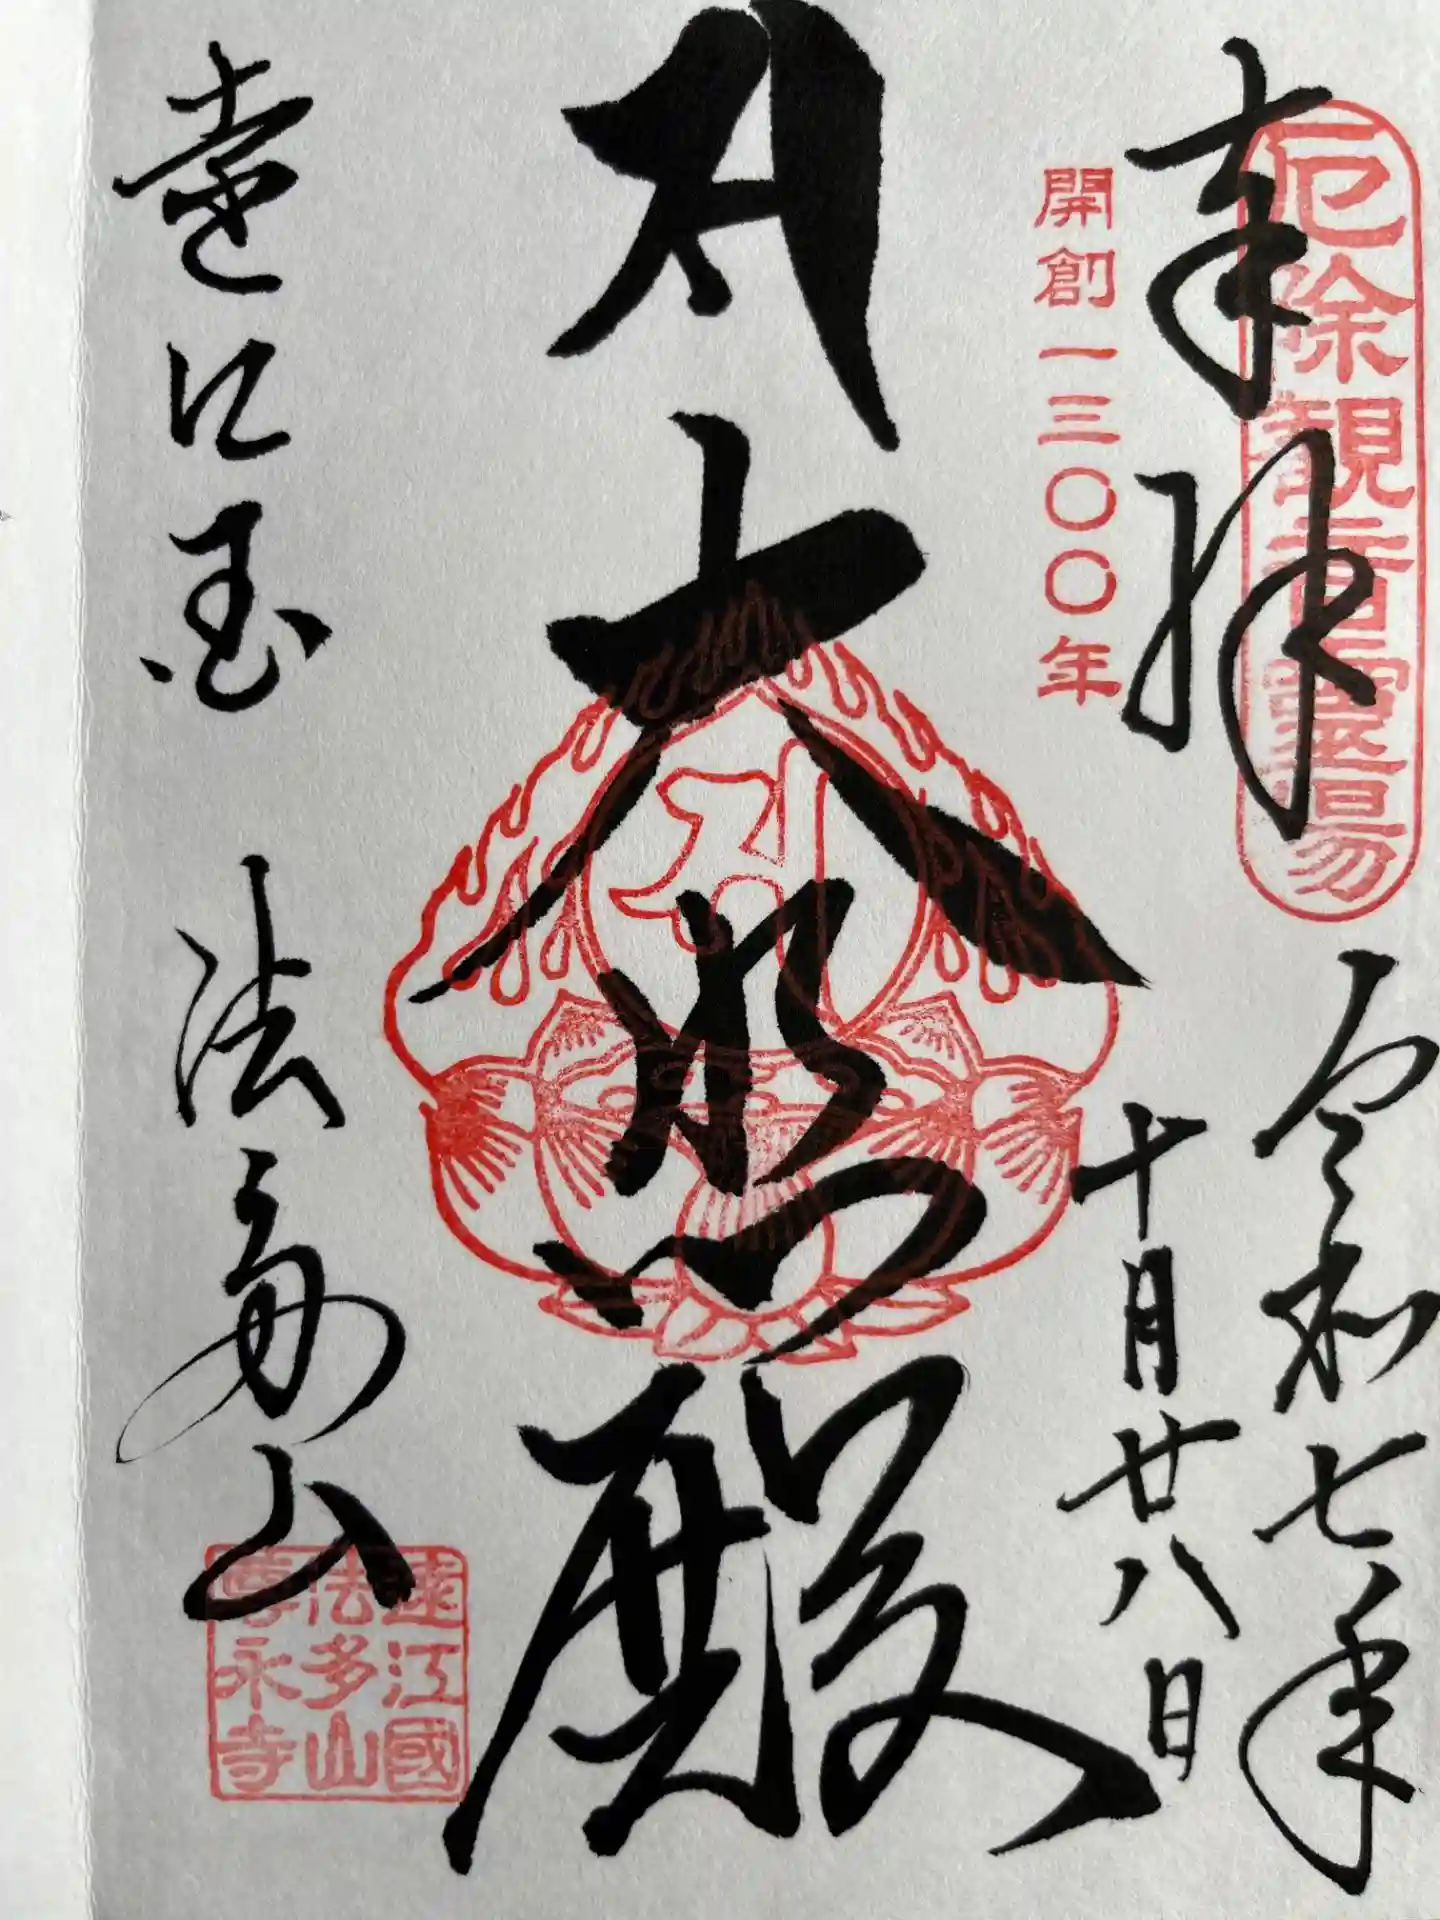 厄除観音霊場
奉拝
令和七年
十月廿八日
開創一三〇〇年
大悲殿
遠江国 法多山
遠江國
法多山
尊永寺